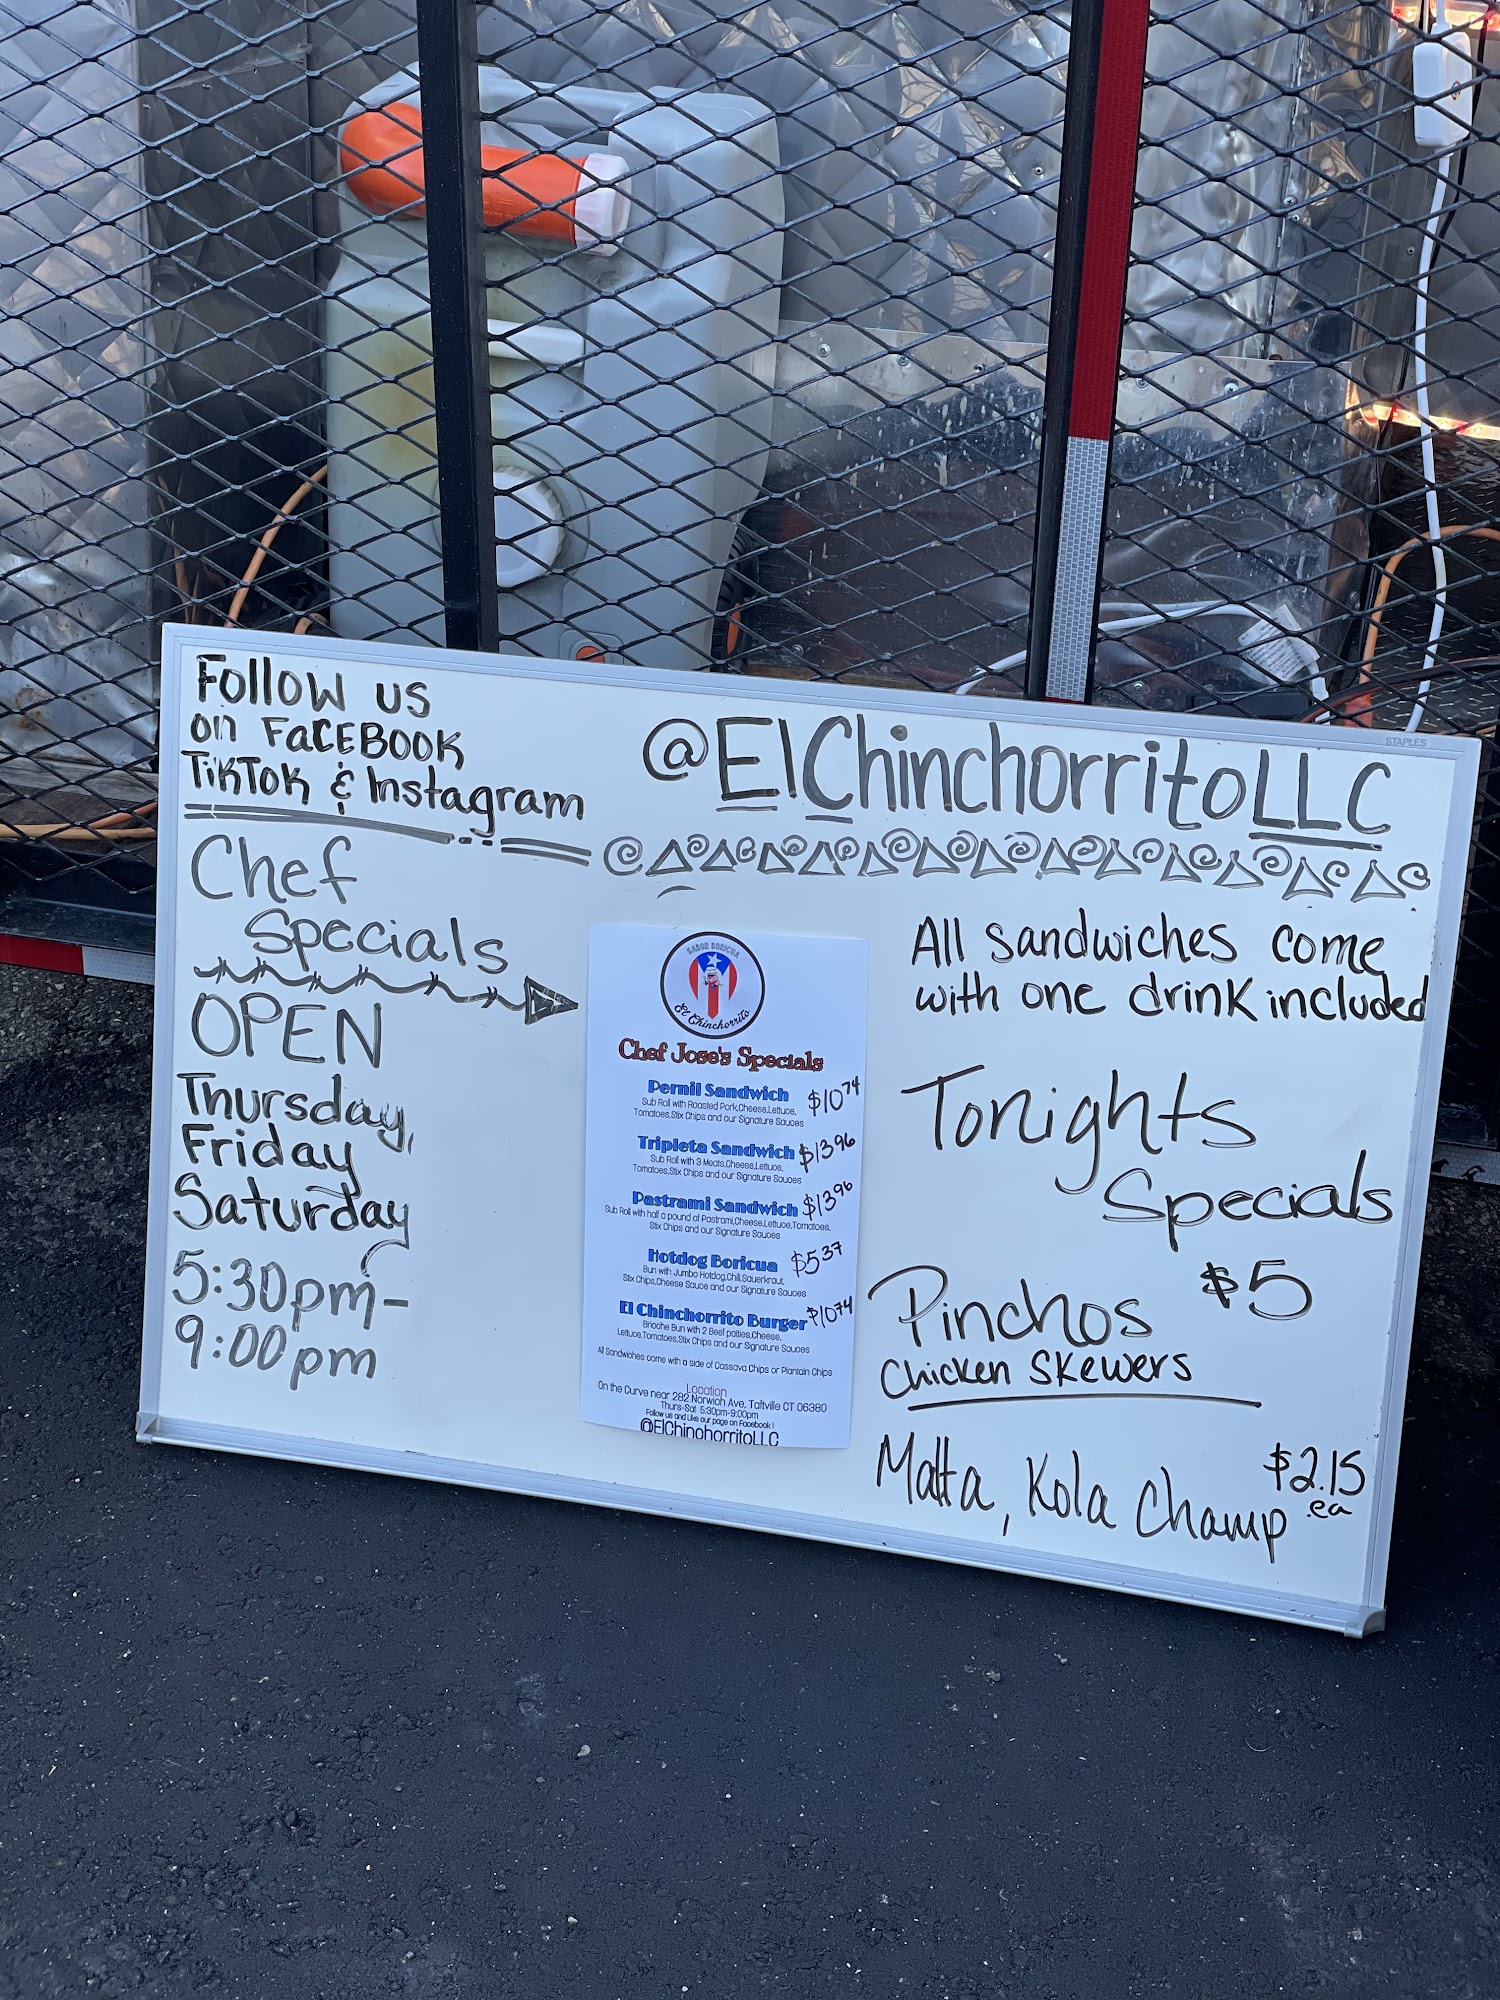 STAPLES
Follow us
on FaCEBOOK
TikTok & Instagram
@ElChinchorritoLLC
Chef
Specials
OPEN
Thursday,
Friday
Saturday
5:30pm-
9:00pm
SABOR BORICUA
El Chinchorrito
Chef Jose's Specials
Pernil Sandwich $10 74
Sub Roll with Roasted Pork,Cheese,Lettuce,
Tomatoes,Stix Chips and our Signature Sauces
Tripleta Sandwich $13 96
Sub Roll with 3 Meats,Cheese,Lettuce,
Tomatoes,Stix Chips and our Signature Sauces
Pastrami Sandwich $13 96
Sub Roll with half a pound of Pastrami,Cheese,Lettuce,Tomatoes,
Stix Chips and our Signature Sauces
Hotdog Boricua $5 37
Bun with Jumbo Hotdog,Chili,Sauerkraut,
Stix Chips,Cheese Sauce and our Signature Sauces
El Chinchorrito Burger $10 74
Brioche Bun with 2 Beef patties,Cheese,
Lettuce,Tomatoes,Stix Chips and our Signature Sauces
All Sandwiches come with a side of Cassava Chips or Plantain Chips
Location
On the Curve near 282 Norwich Ave, Taftville CT 06380
Thurs-Sat 5:30pm-9:00pm
Follow us and Like our page on Facebook !
@ElChinchorritoLLC
All sandwiches come
with one drink included
Tonights
Specials
Pinchos $5
Chicken Skewers
Malta, Kola Champ $2.15
ea